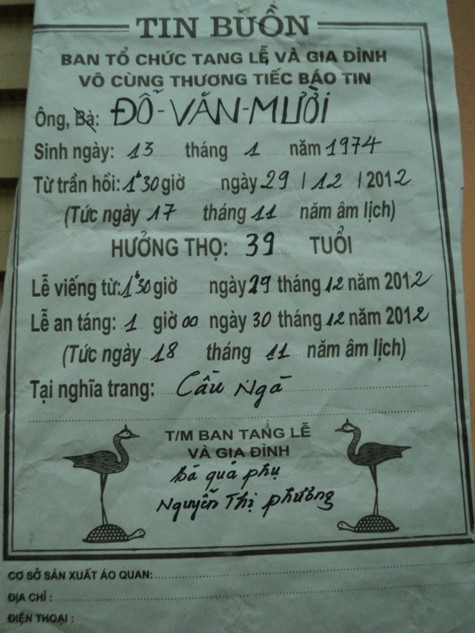 TIN BUỒN
BAN TỔ CHỨC TANG LỄ VÀ GIA ĐÌNH
VÔ CÙNG THƯƠNG TIẾC BÁO TIN
Ông, Bà: ĐỖ-VĂN-MƯỜI
Sinh ngày: 13 tháng 1 năm 1974
Từ trần hồi: 1h30 giờ ngày 29 / 12 / 2012
(Tức ngày 17 tháng 11 năm âm lịch)
HƯỞNG THỌ: 39 TUỔI
Lễ viếng từ: 1h30 giờ ngày 29 tháng 12 năm 2012
Lễ an táng: 1 giờ 00 ngày 30 tháng 12 năm 2012
(Tức ngày 18 tháng 11 năm âm lịch)
Tại nghĩa trang: Cầu Ngà
T/M BAN TANG LỄ
VÀ GIA ĐÌNH
bà quả phụ
Nguyễn Thị Phương
CƠ SỞ SẢN XUẤT ÁO QUAN:
ĐỊA CHỈ :
ĐIỆN THOẠI :